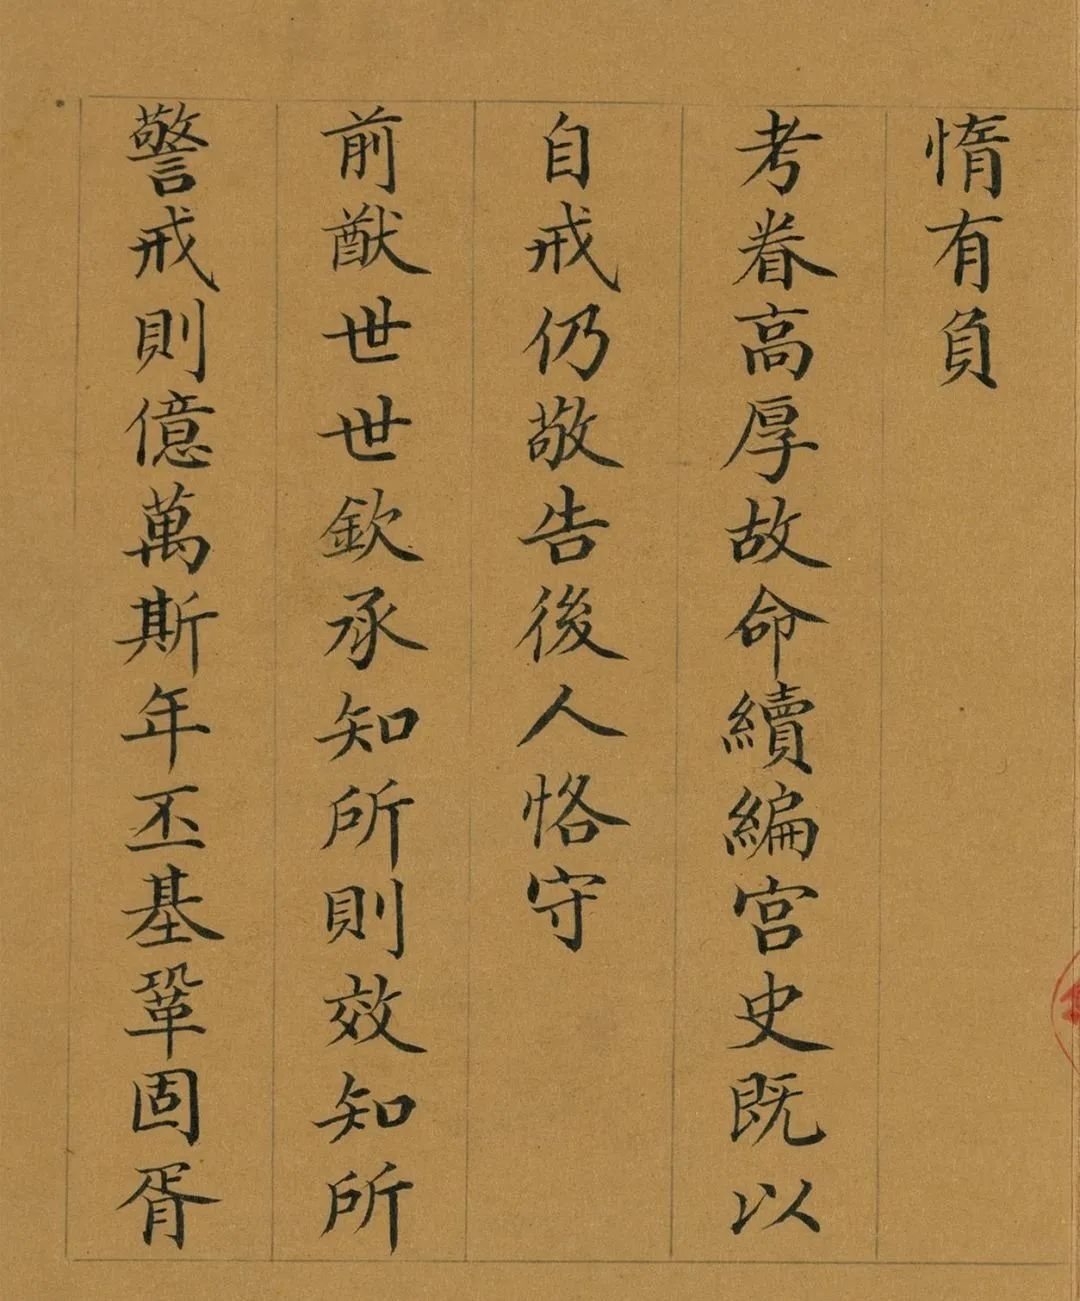 惰有負
考眷高厚故命續編宮史既以
自戒仍敬告後人恪守
前猷世世欽承知所則效知所
警戒則億萬斯年丕基鞏固胥